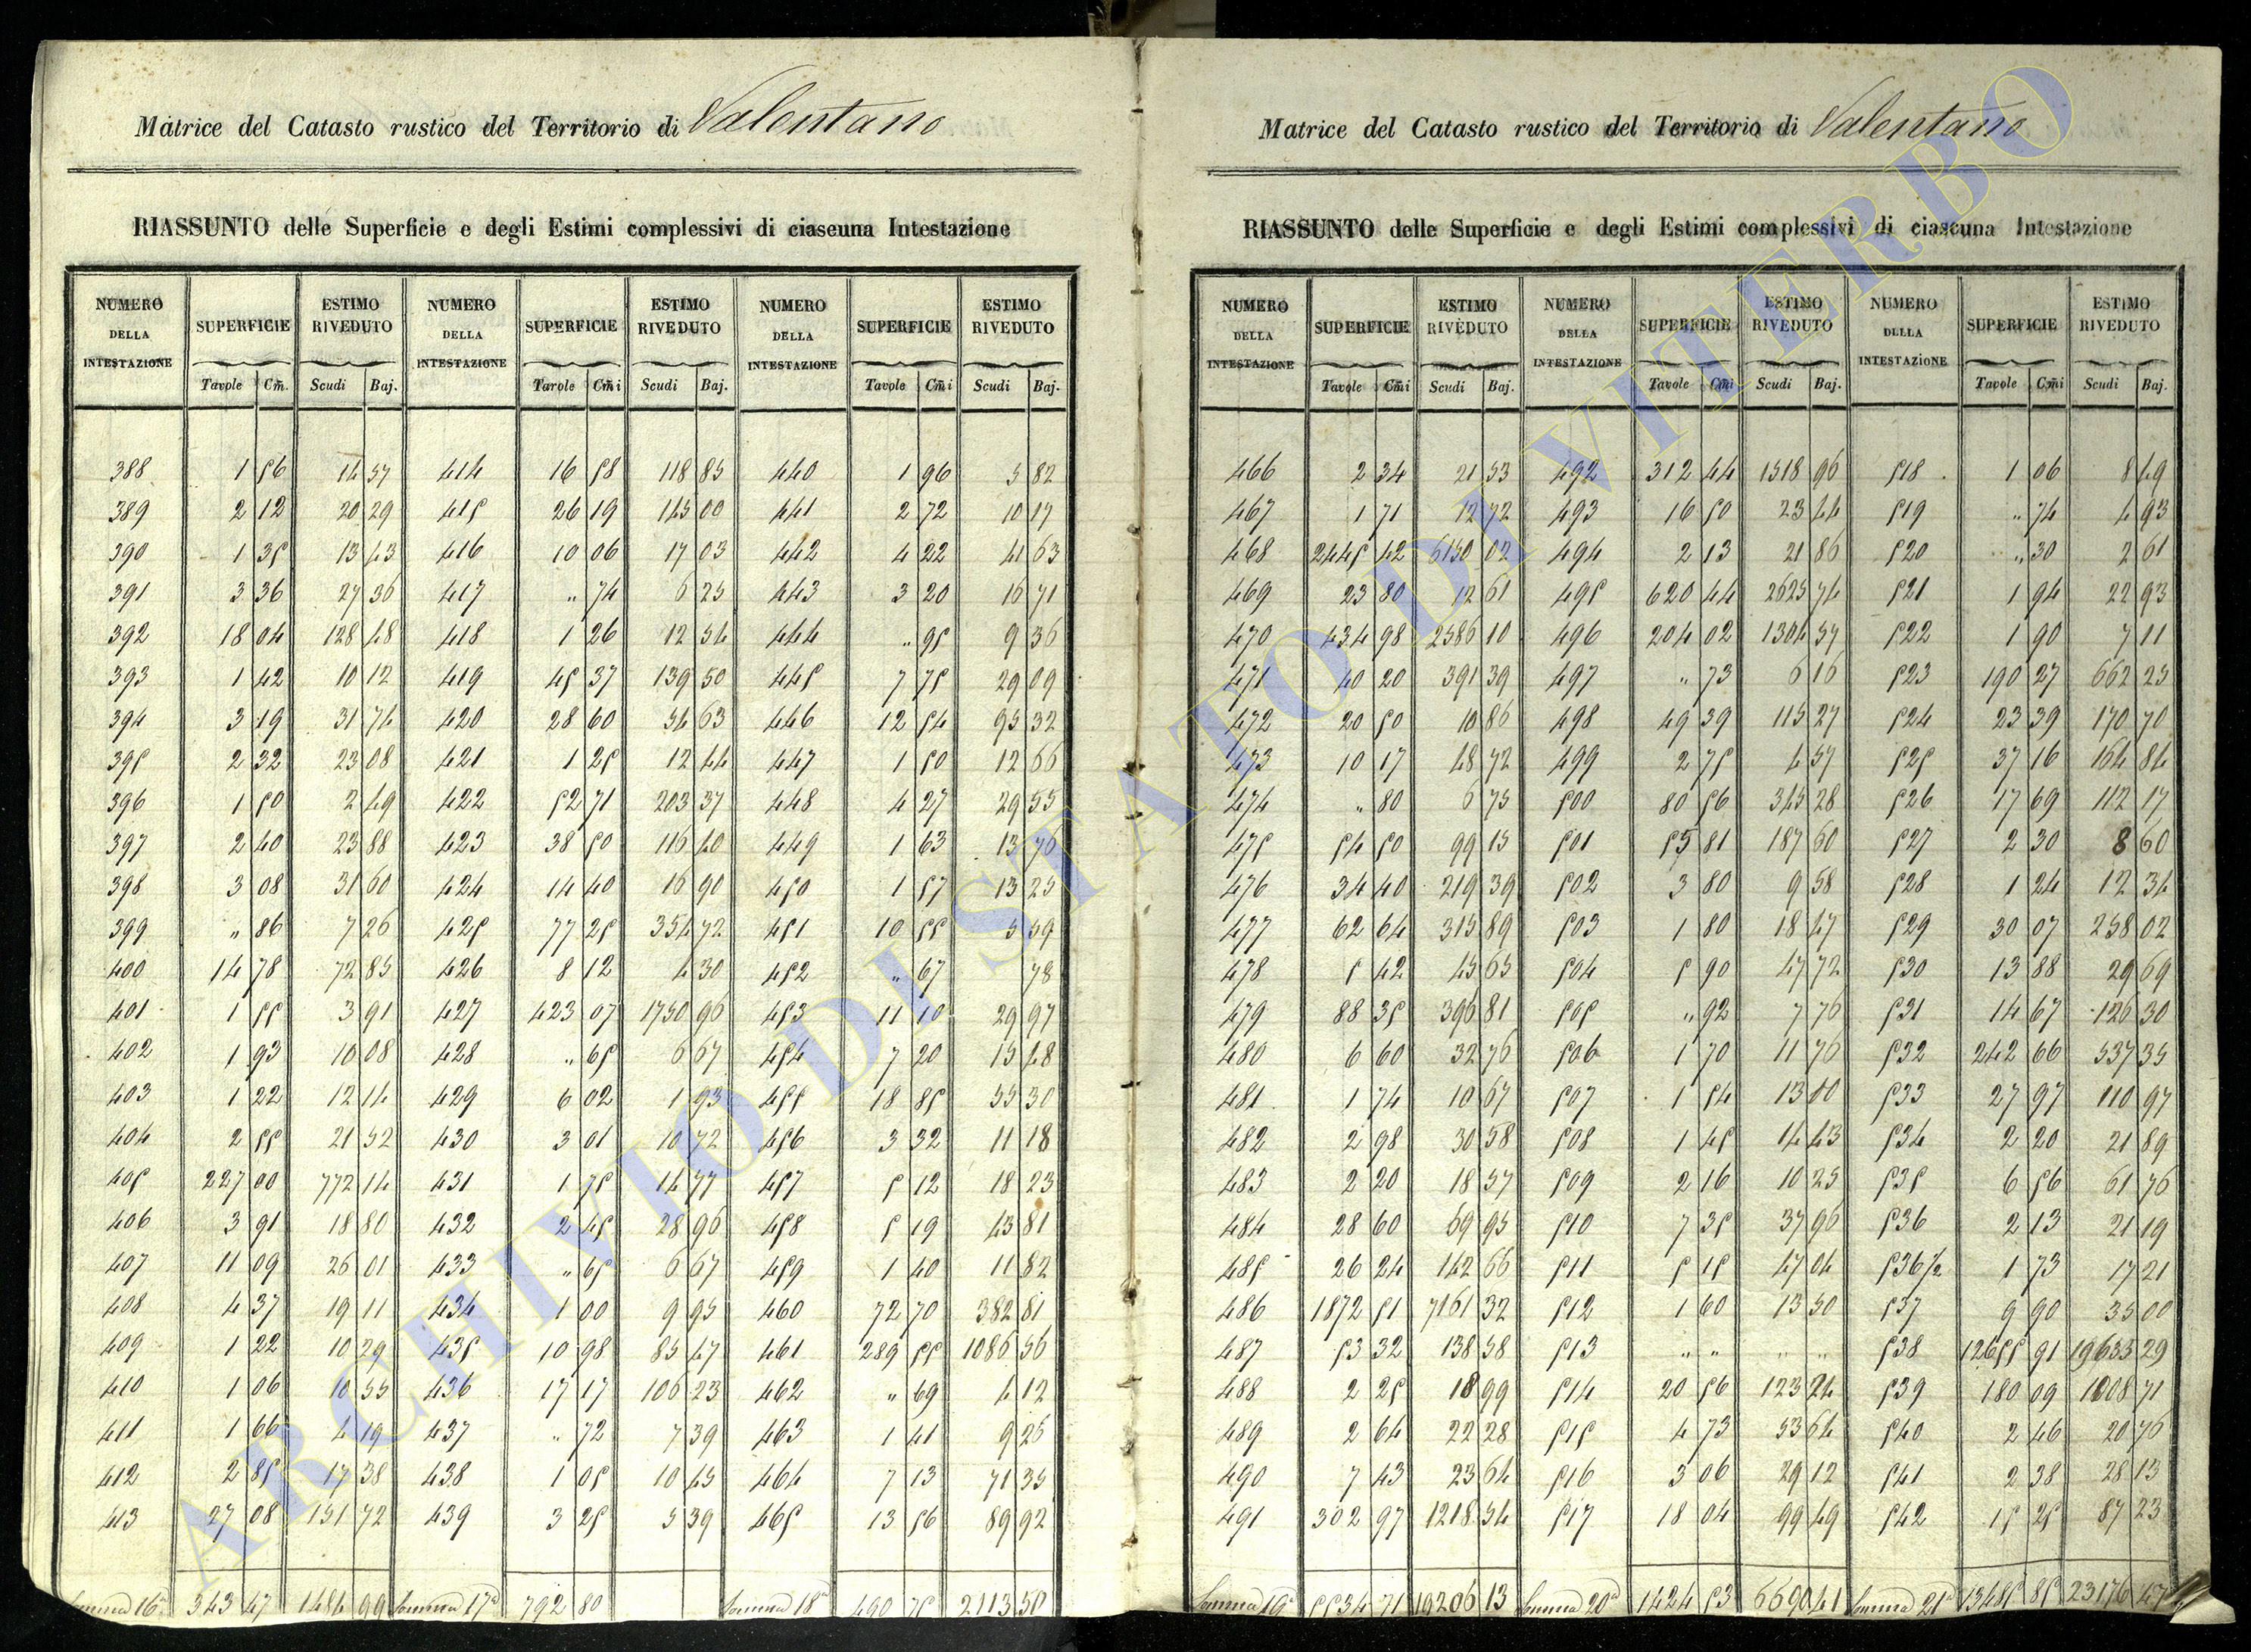 Matrice del Catasto rustico del Territorio di Valentano
RIASSUNTO delle Superficie e degli Estimi complessivi di ciascuna Intestazione
NUMERO DELLA INTESTAZIONE SUPERFICIE ESTIMO RIVEDUTO NUMERO DELLA INTESTAZIONE SUPERFICIE ESTIMO RIVEDUTO NUMERO DELLA INTESTAZIONE SUPERFICIE ESTIMO RIVEDUTO
Tavole Cm. Scudi Baj. Tavole Cmi Scudi Baj. Tavole Cmi Scudi Baj.
388 1 56 14 57 414 16 58 118 85 440 1 96 5 82
389 2 12 20 29 415 26 19 145 00 441 2 72 10 17
390 1 35 13 43 416 10 06 17 03 442 4 22 41 63
391 3 36 27 36 417 " 74 6 25 443 3 20 16 71
392 18 04 128 48 418 1 26 12 54 444 " 95 9 36
393 1 42 10 12 419 45 37 139 50 445 7 75 29 09
394 3 19 31 74 420 28 60 54 63 446 12 54 95 32
395 2 32 23 08 421 1 25 12 44 447 1 50 12 66
396 1 50 2 49 422 52 71 203 37 448 4 27 29 55
397 2 40 23 88 423 38 50 116 40 449 1 63 13 76
398 3 08 31 60 424 14 40 16 90 450 1 57 13 25
399 " 86 7 26 425 77 25 354 72 451 10 55 5 59
400 14 78 72 85 426 8 12 4 30 452 " 67 78
401 1 55 3 91 427 423 07 1750 96 453 11 10 29 97
402 1 93 16 08 428 " 65 6 67 454 7 20 15 48
403 1 22 12 14 429 6 02 1 93 455 18 85 55 30
404 2 55 21 52 430 3 01 10 72 456 3 32 11 18
405 227 00 772 14 431 1 75 14 77 457 5 12 18 23
406 3 91 18 80 432 2 45 28 96 458 5 19 43 81
407 11 09 26 01 433 " 65 6 67 459 1 40 11 82
408 4 37 19 11 434 1 00 9 95 460 72 70 382 81
409 1 22 10 29 435 10 98 85 47 461 289 55 1086 56
410 1 06 10 55 436 17 17 106 23 462 " 69 4 12
411 1 66 4 19 437 " 72 7 39 463 1 41 9 26
412 2 85 17 38 438 1 05 10 45 464 7 13 71 35
413 27 08 151 72 439 3 25 5 39 465 13 56 89 92
Somma 16a 343 47 1484 99 Somma 17a 792 80 Somma 18a 490 75 2113 50
Matrice del Catasto rustico del Territorio di Valentano
RIASSUNTO delle Superficie e degli Estimi complessivi di ciascuna Intestazione
NUMERO DELLA INTESTAZIONE SUPERFICIE ESTIMO RIVEDUTO NUMERO DELLA INTESTAZIONE SUPERFICIE ESTIMO RIVEDUTO NUMERO DELLA INTESTAZIONE SUPERFICIE ESTIMO RIVEDUTO
Tavole Cmi Scudi Baj. Tavole Cmi Scudi Baj. Tavole Cmi Scudi Baj.
466 2 34 21 53 492 312 44 1518 96 518 1 06 8 49
467 1 71 12 72 493 16 50 23 44 519 " 74 4 93
468 2445 42 6150 02 494 2 13 21 86 520 " 30 2 61
469 23 80 12 61 495 620 44 2625 74 521 1 94 22 93
470 434 98 2586 10 496 204 02 1304 57 522 1 90 7 11
471 40 20 391 39 497 " 73 6 16 523 190 27 662 25
472 20 50 10 86 498 49 39 115 27 524 23 39 170 70
473 10 17 48 72 499 2 75 4 57 525 37 16 164 84
474 " 80 6 75 500 80 56 345 28 526 17 69 112 17
475 54 50 99 15 501 55 81 187 60 527 2 30 8 60
476 34 40 219 39 502 3 80 9 58 528 1 24 12 34
477 62 64 315 89 503 1 80 18 47 529 30 07 258 02
478 5 42 45 65 504 5 90 47 72 530 13 88 29 69
479 88 35 396 81 505 " 92 7 76 531 14 67 126 30
480 6 60 32 76 506 1 70 11 76 532 242 66 537 35
481 1 74 10 67 507 1 54 13 00 533 27 97 110 97
482 2 98 30 58 508 1 45 14 43 534 2 20 21 89
483 2 20 18 57 509 2 16 10 25 535 6 56 61 76
484 28 60 69 95 510 7 35 37 96 536 2 13 21 19
485 26 24 142 66 511 5 15 47 04 536 1/2 1 73 17 21
486 1872 51 7161 32 512 1 60 13 50 537 9 90 35 00
487 53 32 138 58 513 " " " " 538 12655 91 19633 29
488 2 25 18 99 514 20 56 123 24 539 180 09 1008 71
489 2 64 22 28 515 4 73 53 64 540 2 46 20 76
490 7 43 23 64 516 3 06 29 12 541 2 38 28 13
491 302 97 1218 54 517 18 04 99 49 542 15 25 87 23
Somma 19a 5534 71 19206 13 Somma 20a 1424 53 6690 41 Somma 21a 13485 85 23176 47
ARCHIVIO DI STATO DI VITERBO